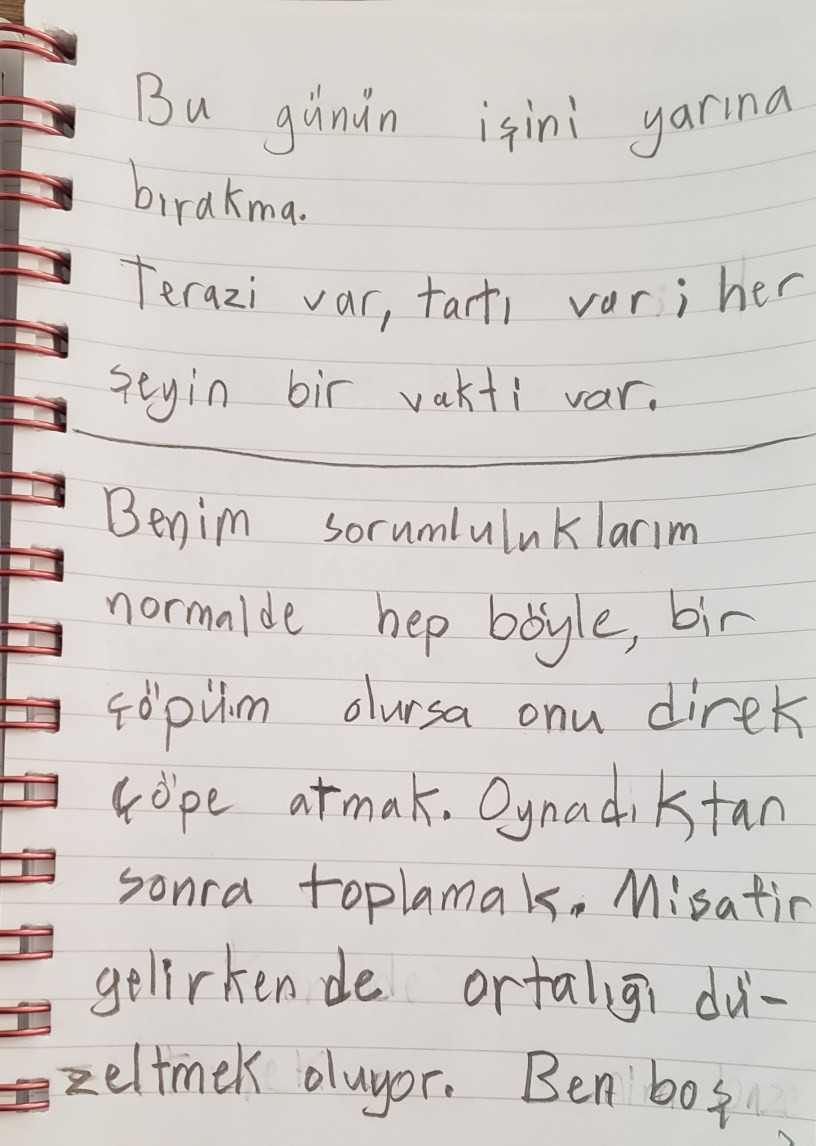 Bu günün işini yarına
bırakma.
Terazi var, tartı var; her
şeyin bir vakti var.
Benim sorumluluklarım
normalde hep böyle, bir
çöpüm olursa onu direk
çöpe atmak. Oynadıktan
sonra toplamak. Misafir
gelirken de ortalığı dü-
zeltmek oluyor. Ben boş